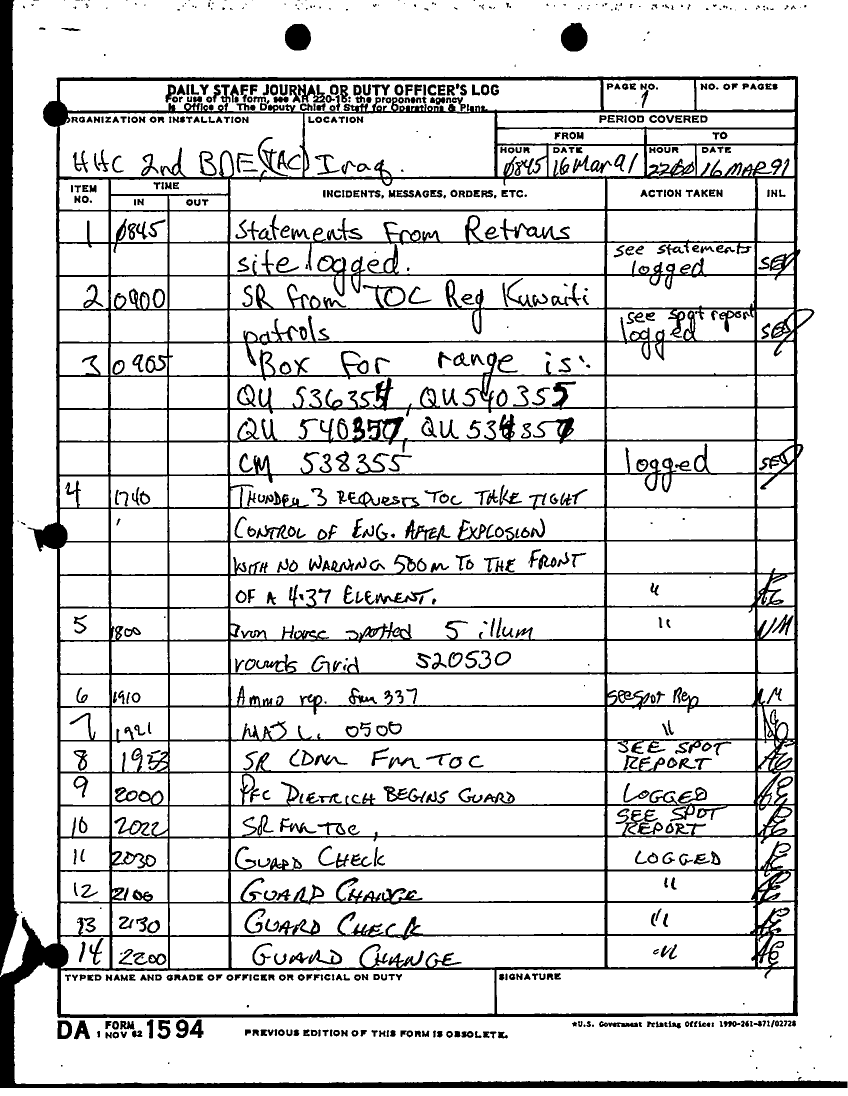 DAILY STAFF JOURNAL OR DUTY OFFICER'S LOG
For use of this form, see AR 220-15; the proponent agency
is Office of The Deputy Chief of Staff for Operations & Plans.
PAGE NO.
1
NO. OF PAGES
ORGANIZATION OR INSTALLATION
LOCATION
PERIOD COVERED
FROM
TO
HOUR
DATE
HOUR
DATE
HHC 2nd BDE (TAC) Iraq
0845 16 Mar 91 2200 16 MAR 91
ITEM NO.
TIME
IN
OUT
INCIDENTS, MESSAGES, ORDERS, ETC.
ACTION TAKEN
INL
1 0845 Statements From Retrans
site logged. see statements logged
2 0900 SR from TOC Reg Kuwaiti
patrols see spot report logged
3 0905 Box for range is:
QU 536354, QU 540355
QU 540357, QU 534357
CM 538355 logged
4 1740 THUNDER 3 REQUESTS TOC TAKE TIGHT
CONTROL OF ENG. AFTER EXPLOSION
WITH NO WARNING 500m TO THE FRONT
OF A 4-37 ELEMENT. "
5 1800 Iron Horse spotted 5 illum "
rounds Grid 520530
6 1910 Ammo rep. 337 see spot Rep
7 1921 0500 "
8 1953 SR CDM Fm TOC SEE SPOT REPORT
9 2000 PFC DIETRICH BEGINS GUARD LOGGED
10 2022 SR Fm TOC, SEE SPOT REPORT
11 2030 GUARD CHECK LOGGED
12 2100 GUARD CHANGE "
13 2130 GUARD CHECK "
14 2200 GUARD CHANGE "
TYPED NAME AND GRADE OF OFFICER OR OFFICIAL ON DUTY
SIGNATURE
DA FORM 1 NOV 62 1594
PREVIOUS EDITION OF THIS FORM IS OBSOLETE.
*U.S. Government Printing Office: 1990-261-871/02728